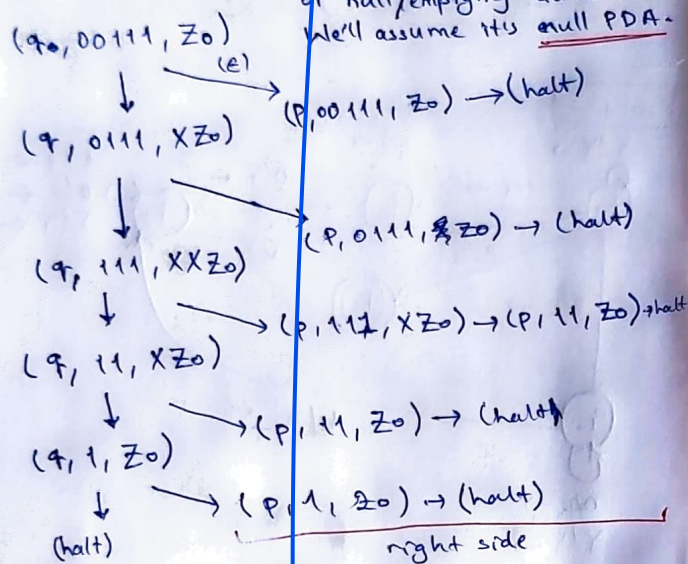 We'll assume it's null PDA.
(q₀, 00111, Z₀)
(ε)
(P, 00111, Z₀) → (halt)
(q, 0111, XZ₀)
(P, 0111, Z₀) → (halt)
(q, 111, XXZ₀)
(p, 111, XZ₀) → (P, 11, Z₀) → halt
(q, 11, XZ₀)
(p, 11, Z₀) → (halt)
(q, 1, Z₀)
(P, 1, Z₀) → (halt)
(halt)
right side